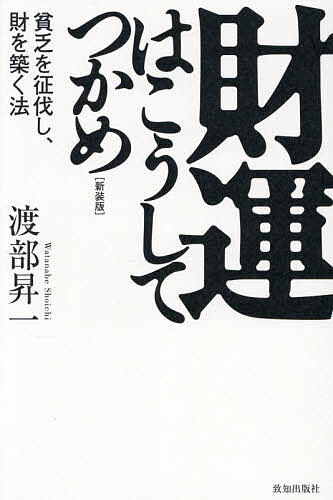 財運
はこうして
つかめ
[新装版]
貧乏を征伐し、
財を築く法
渡部昇一
Watanabe Shoichi
致知出版社